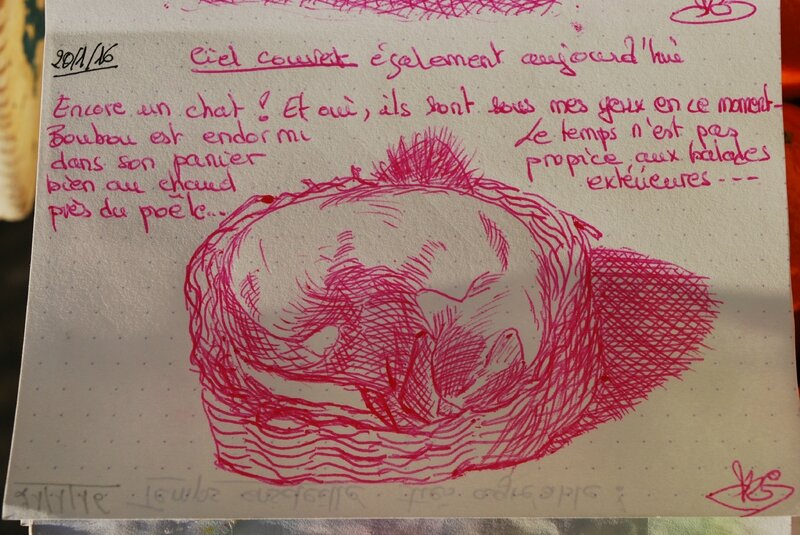 20/1/16
Ciel couvert également aujourd'hui
Encore un chat ! Et oui, ils sont sous mes yeux en ce moment -
Boubou est endormi
dans son panier
bien au chaud
près du poêle...
Le temps n'est pas
propice aux balades
extérieures ---